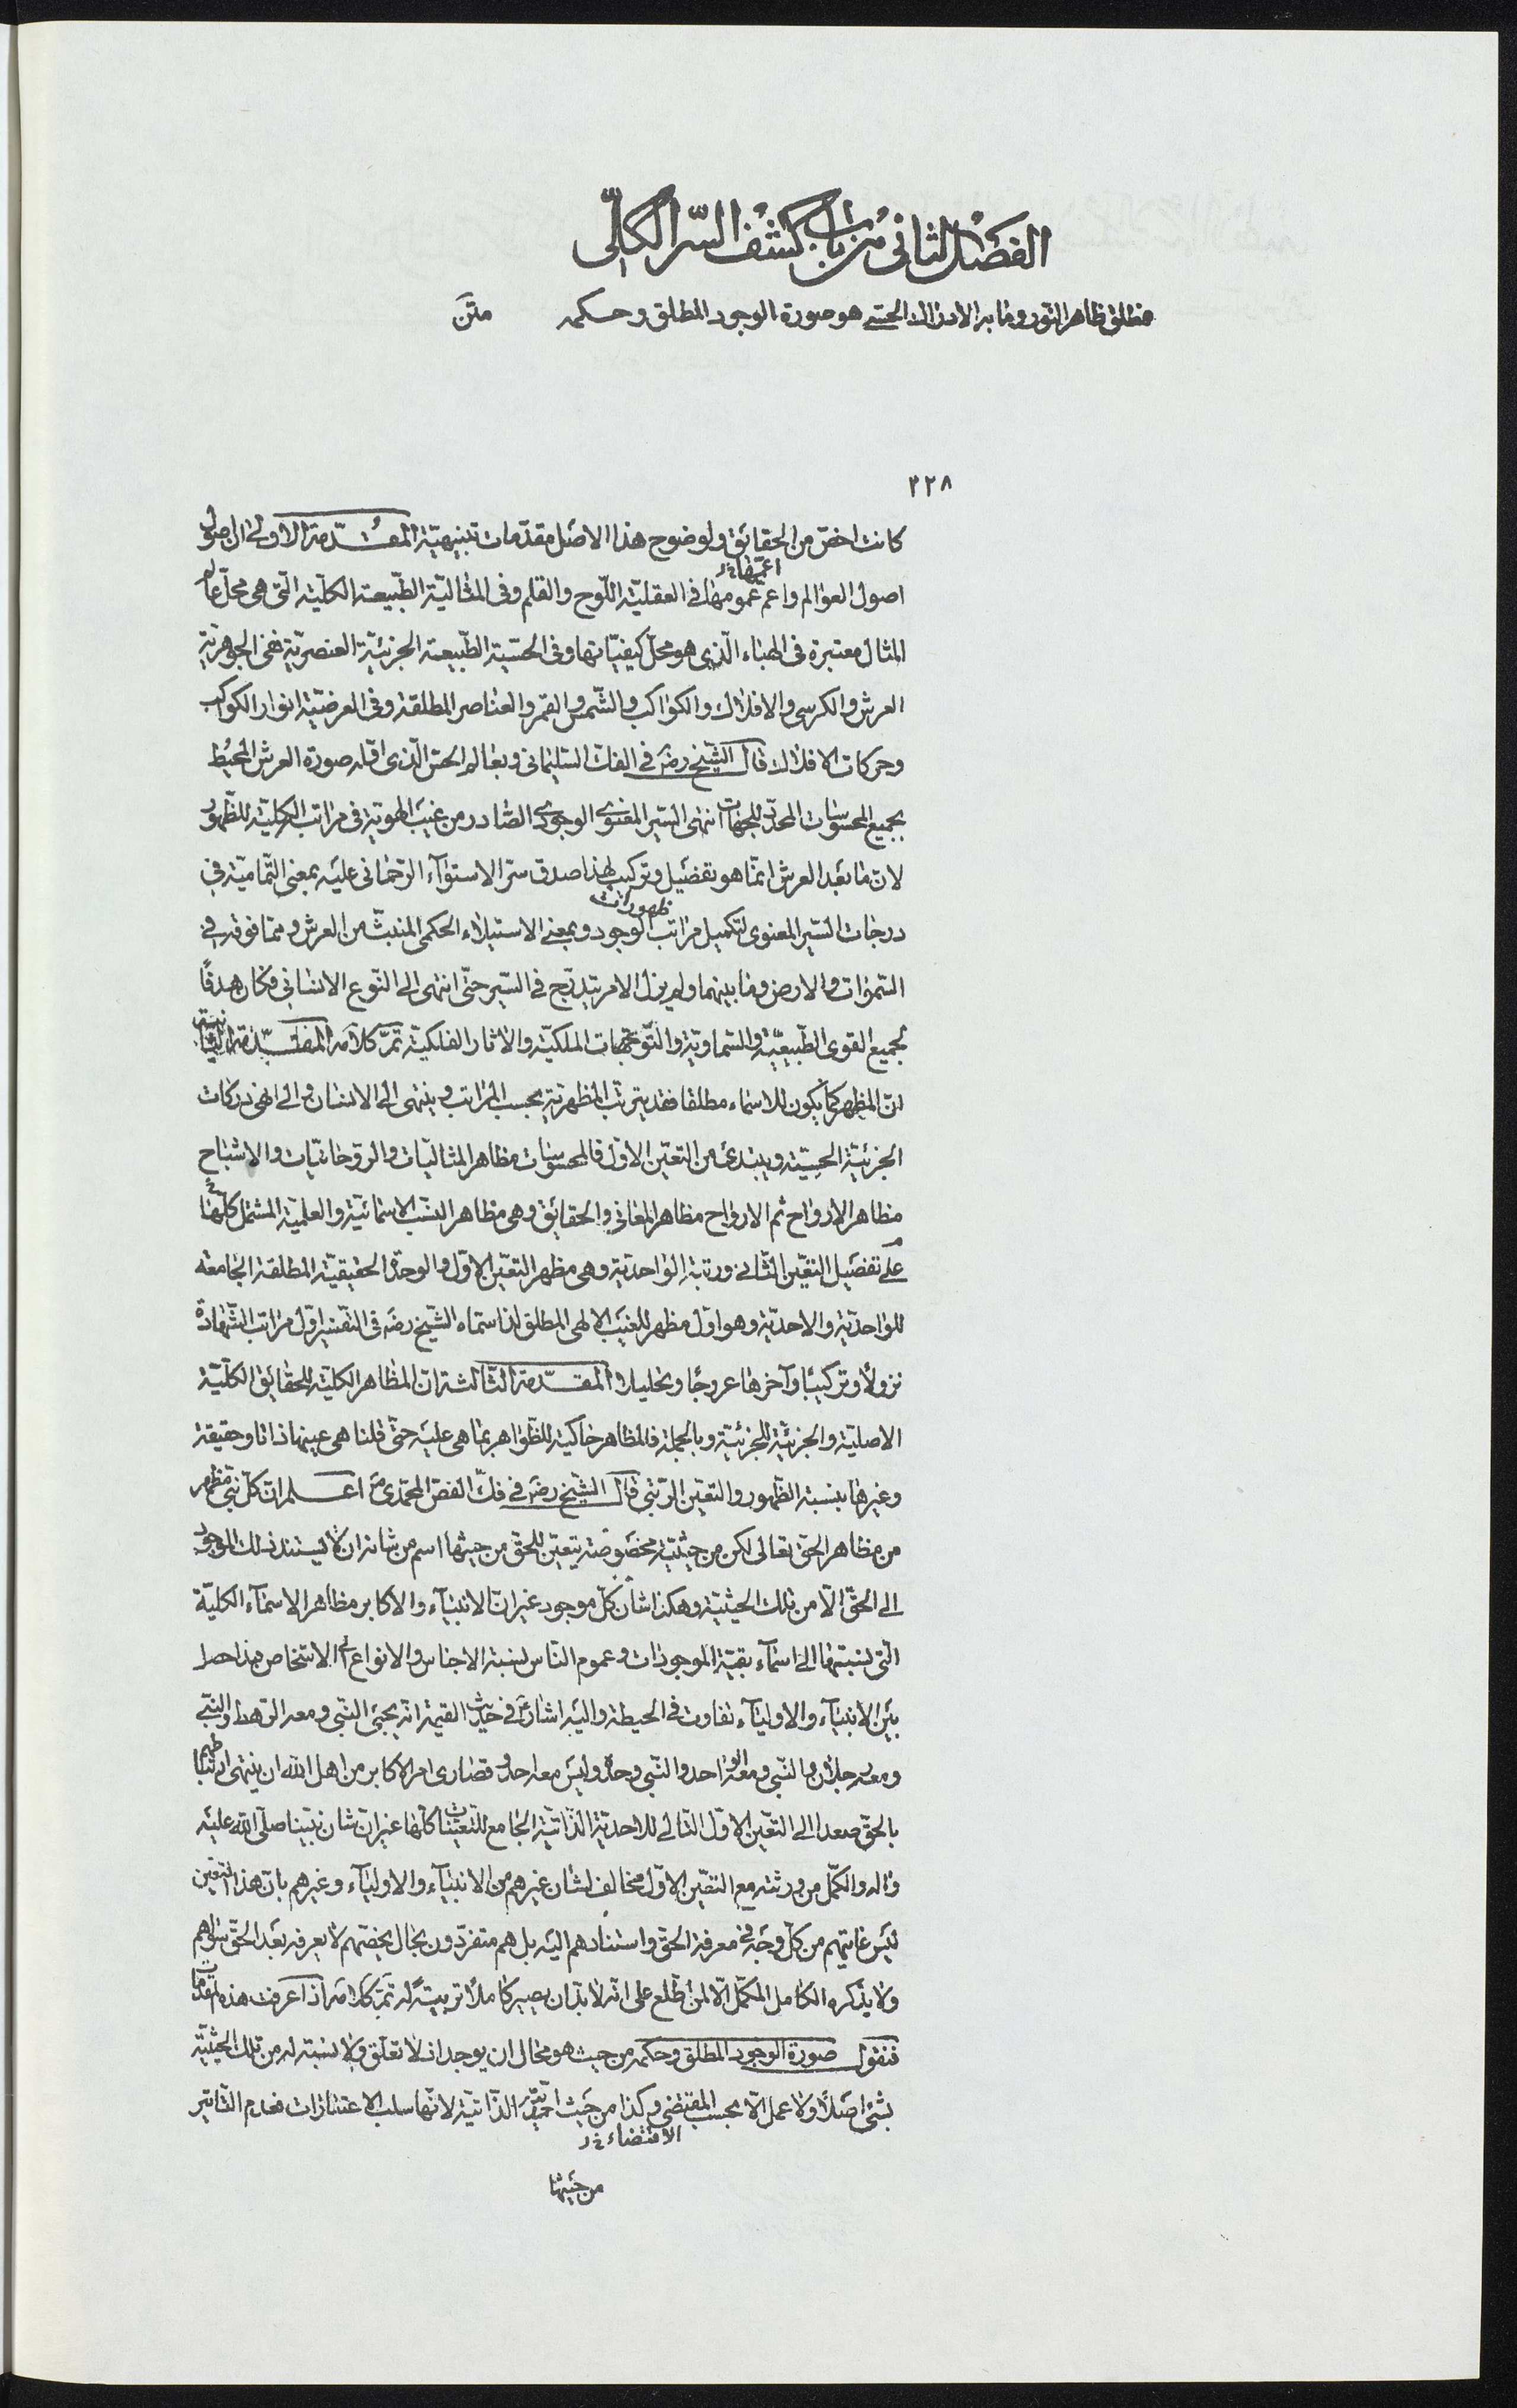 الفصل الثانى من باب كشف السّر الكلّى
مطلق ظاهر النّور وما به الادراك الحسّى هو صورة الوجود المطلق وحكمه متن
٣٢٨
كانت اخصّ من الحقائق ولوضوح هذا الاصل مقدّمات تنبيهيّة المقدّمة الاولى ان اصول
اعمّها خ‌ر
اصول العوالم واعم عمومها فى العقليّة اللّوح والقلم وفى المثاليّة الطّبيعة الكليّة الّتى هى محلّ عالم
المثال معتبرة فى الهباء الّذى هو محلّ كيفيّاتها وفى الحسّية الطّبيعة الجزئيّة العنصريّة ففى الجوهريّة
العرش والكرسى والافلاك والكواكب والشّمس والقمر والعناصر المطلقة وفى العرضيّة انوار الكواكب
وحركات الافلاك قال الشّيخ رضه فى الفكّ السّليمانى وبعالم الحسّ الّذى اوّله صورة العرش المحيط
بجميع المحسوسات المحدّد للجهات انتهى السّير المعنوى الوجودى الصّادر من غيب الهويّة فى مراتب الكليّة للظّهور
لانّ ما بعد العرش انّما هو تفصيل وتركيب لهذا صدق سرّ الاستوآء الرّحمانى عليه بمعنى التّماميّة فى
ظهورات
درجات السّير المعنوى لتكميل مراتب الوجود وبمعنى الاستيلاء الحكمى المنبثّ من العرش وممّا فوقه فى
السّموات والارض وما بينهما ولم يزل الامر يتدرّج فى السّير حتّى انتهى الى النّوع الانسانى فكان هدفًا
لجميع القوى الطّبيعيّة والسّماويّة والتّوجّهات الملكيّة والاثار الفلكيّة تمّ كلامه المقدّمة الثّانية
انّ المظهر كما يكون للاسماء مطلقا فقد يترتّب المظهريّة بحسب المراتب وينتهى الى الانسان والى انهى دركات
الجزئيّة الحسّيّة ويبتدئ من التعيّن الاوّل فالمحسوسات مظاهر المثاليّات والرّوحانيّات والاشباح
مظاهر الارواح ثم الارواح مظاهر المعانى والحقائق وهى مظاهر النّسب الاسمائيّة والعلميّة المشتمل كلّها
على تفصيل التعيّن الثّانى ورتبة الواحديّة وهى مظهر التعيّن الاوّل والوحدة الحقيقيّة المطلقة الجامعة
للواحديّة والاحديّة وهو اوّل مظهر للغيب الالهى المطلق لذا سمّاه الشّيخ رضه فى التّفسير اوّل مراتب الشّهادة
نزولاً وتركيبًا وآخرها عروجًا وتحليلا المقدّمة الثّالثة انّ المظاهر الكليّة للحقائق الكلّيّة
الاصليّة والجزئيّة للجزئيّة وبالجملة فالمظاهر حاكية للظّواهر بما هى عليه حتّى قلنا هى عينها ذاتا وحقيقة
وغيرها بنسبة الظّهور والتعيّن الرّتبى قال الشّيخ رضه فى فكّ الفصّ المحمّدى ص اعلم ان كلّ نبىّ مظهر
من مظاهر الحقّ تعالى لكن من حيثيّة مخصوصة يتعيّن للحقّ من حيثها اسم من شانه ان لا يستند ذلك الموجود
الى الحقّ الّا من تلك الحيثيّة وهكذا شان كلّ موجود غير انّ الانبيآء والاكابر مظاهر الاسمآء الكليّة
الّتى نسبتها الى اسمآء بقيّة الموجودات وعموم النّاس نسبة الاجناس والانواع الى الاشخاص فهذا حصل
بين الانبيآء والاوليآء تفاوت فى الحيطة واليه اشارته فى حديث القيمة انه يجيئ النّبى ومعه الرّهط والنّبى
ومعه رجلان والنّبى ومعه الواحد والنّبى وحده وليس معه احد وقصارى امر الاكابر من اهل الله ان ينتهى ارتباطهم
بالحقّ صعدا الى التعيّن الاوّل التّالى للاحديّة الذّاتيّة الجامع للتّعيّنات كلّها غير انّ شان نبيّنا صلّى الله عليه
وآله والكمّل من ورثته مع التعيّن الاوّل مخالف لشان غيرهم من الانبيآء والاوليآء وغيرهم بانّ هذا التعيّن
ليس غايتهم من كلّ وجه فى معرفة الحقّ واستنادهم اليه بل هم متفرّدون بحال يخصّهم لا يعرفه بعد الحقّ سواهم
ولا يذكره الكامل المكمّل الّا لمن اطّلع على انّه لا بدّ ان يصير كاملاً تربيةً له تمّ كلامه اذا عرفت هذه المقدّمات
فنقول صورة الوجود المطلق وحكمه من حيث هو محال ان يوجد اذ لا تعلّق ولا نسبة له من تلك الحيثيّة
بشئ اصلاً ولا عمل الّا بحسب المقتضى وكذا من حيث احديّته الذّاتيّة لانّها سلب الاعتبارات فعدم التّاثير
الاقتضاء خ‌ر
من حيثها